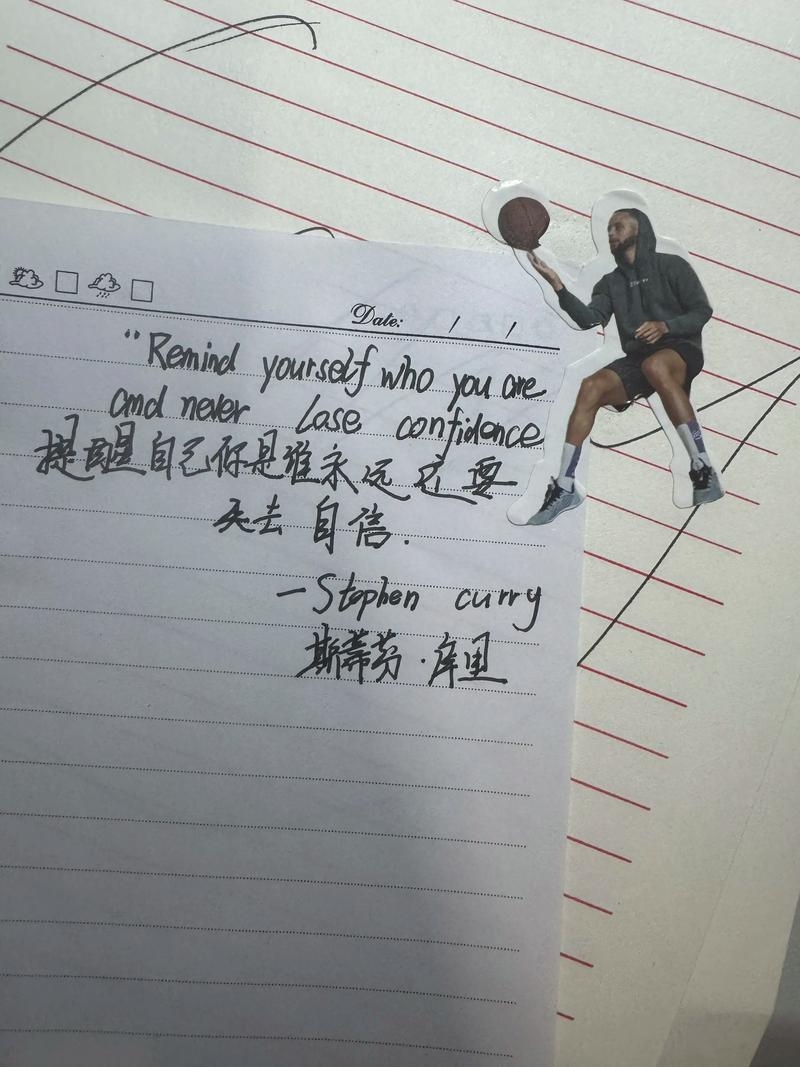 Date: / /
“Remind yourself who you are
and never lose confidence
提醒自己你是谁永远还要
失去自信.
—Stephen curry
斯蒂芬·库里